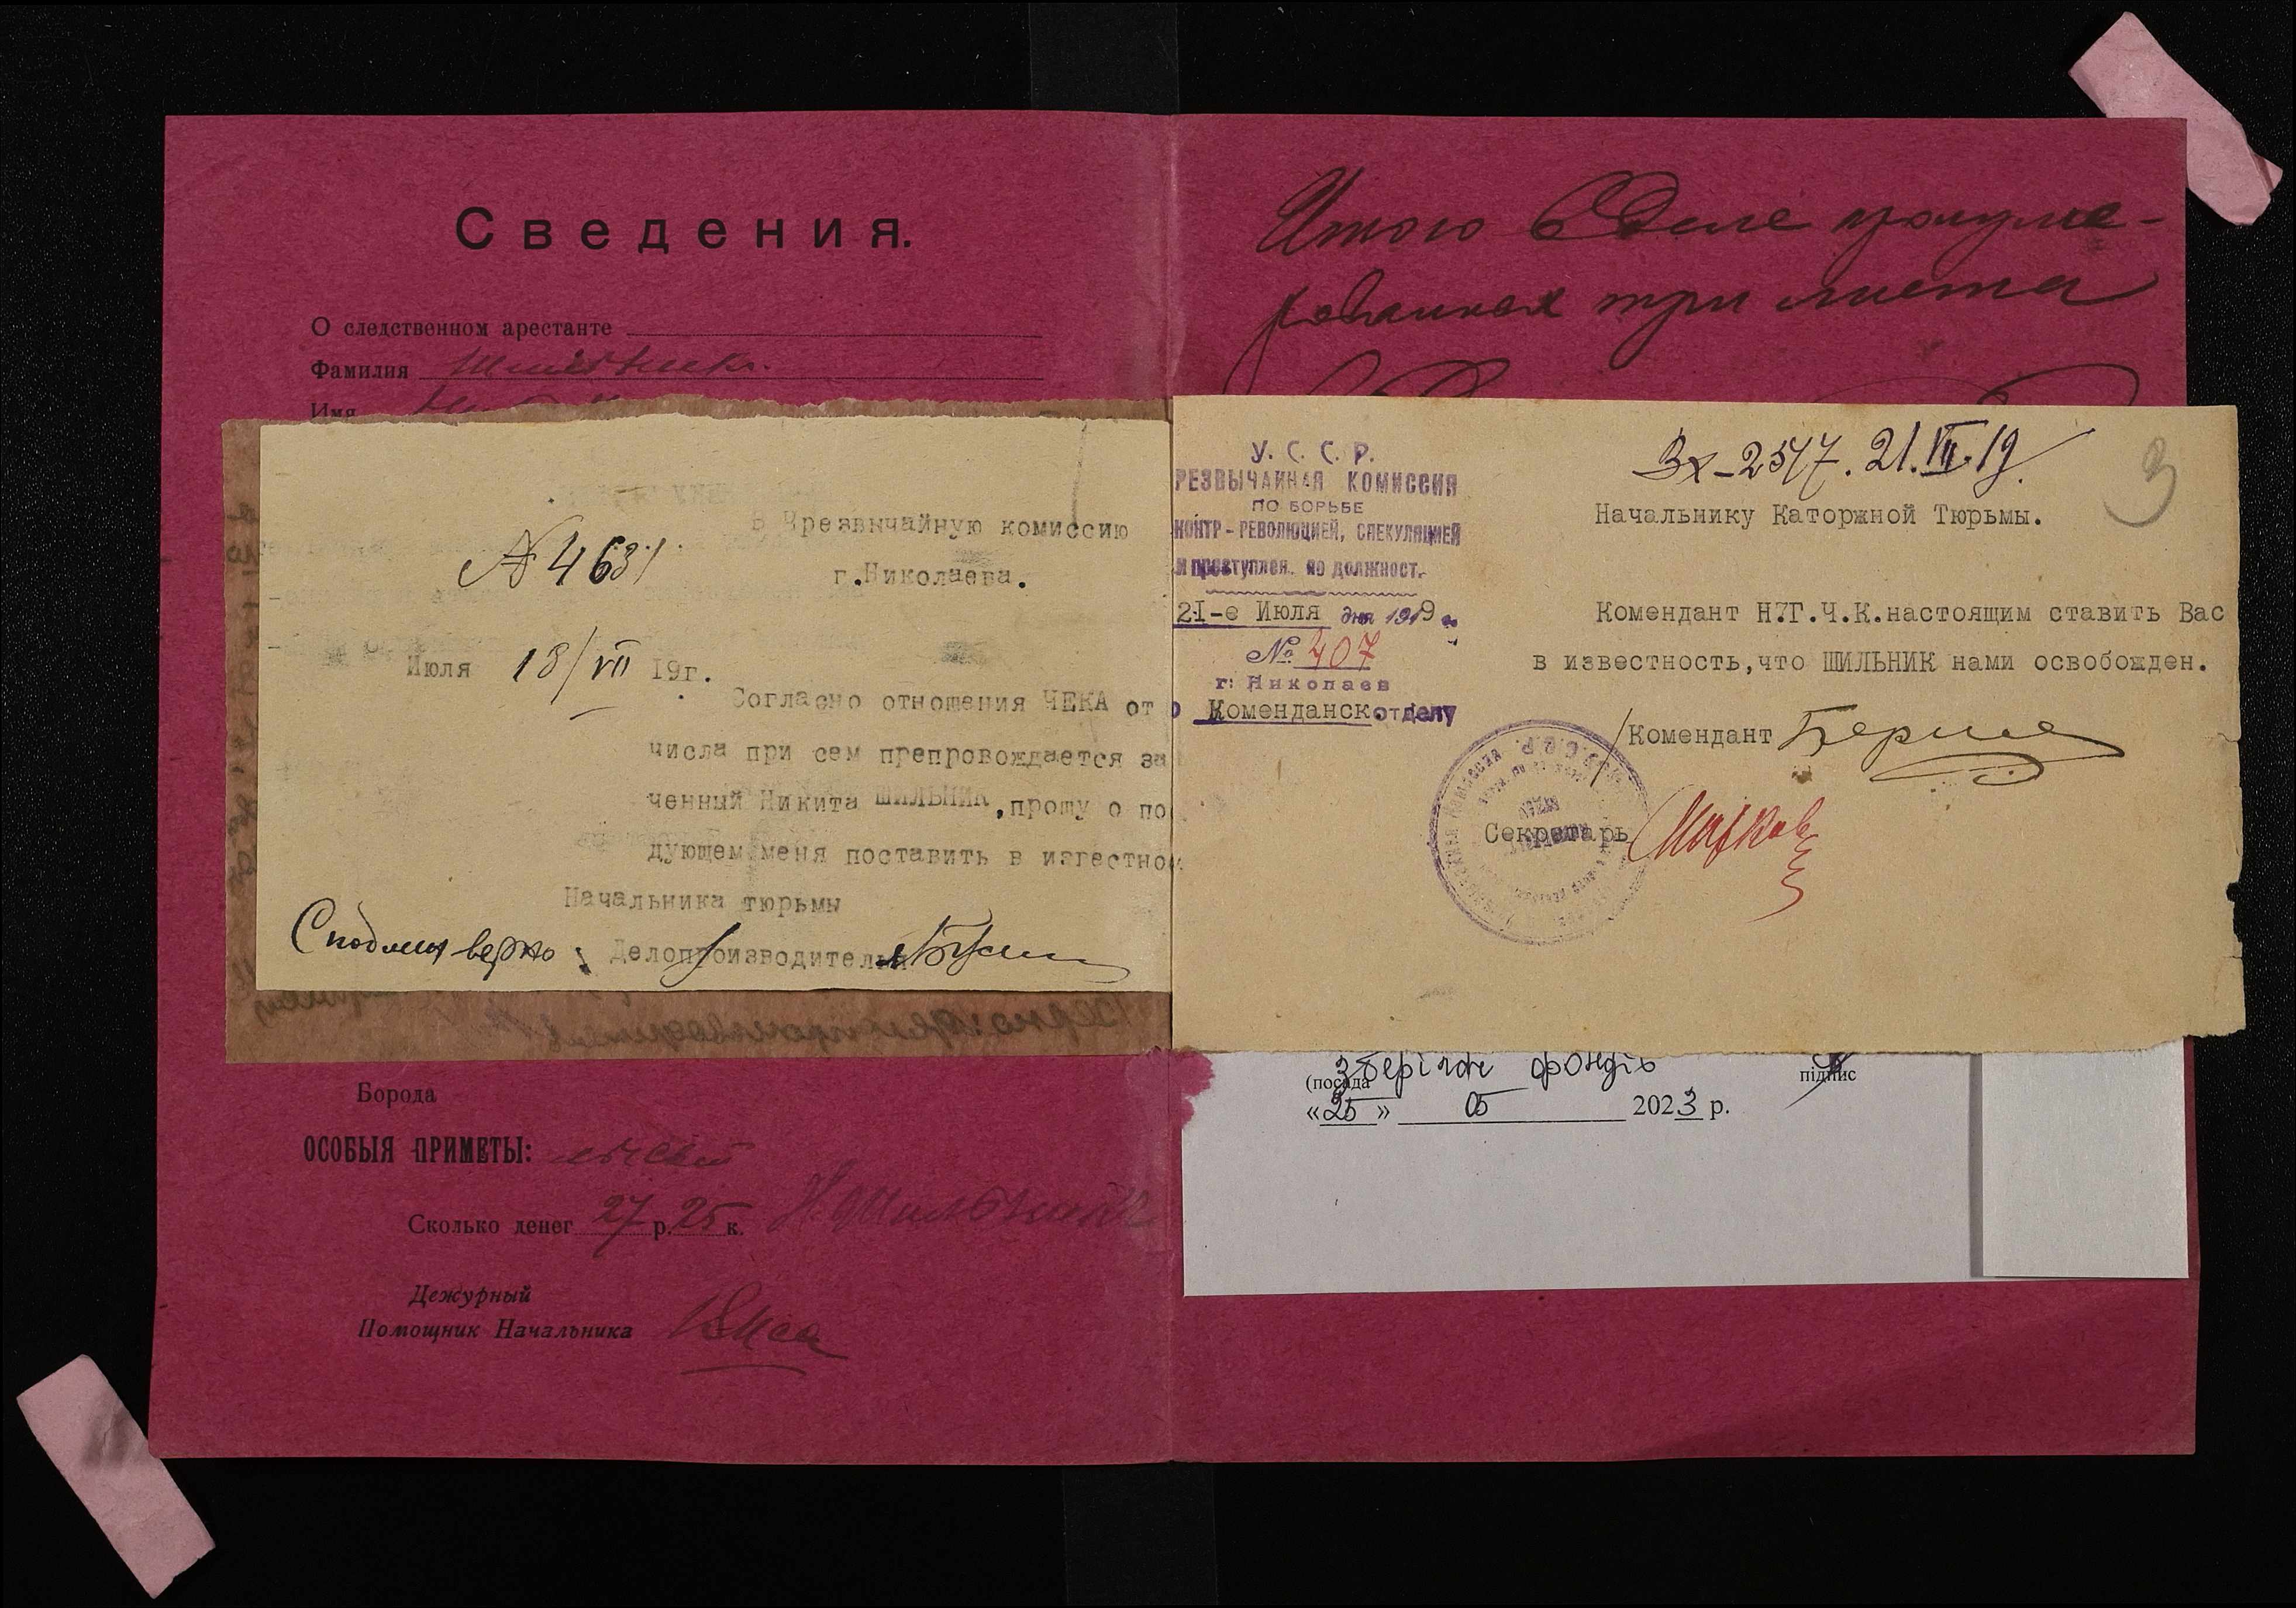 Сведения.
О следственном арестанте
Фамилия Шильник.
Имя
В Чрезвычайную комиссию
г.Николаева.
№ 4631
Июля 18/VII 19г.
Согласно отношения ЧЕКА от
числа при сем препровождается за
ченный Никита ШИЛЬНИК, прошу о по
дующем меня поставить в известнос
Начальника тюрьмы
С подлин верно: Делопроизводитель
Борода
ОСОБЫЯ ПРИМЕТЫ:
Сколько денег 27 р. 25 к. Н. Шильник
Дежурный
Помощник Начальника
Итого в деле пронуме-
рованных три листа
У. С. С. Р.
РЕЗВЫЧАЙНАЯ КОМИССИЯ
ПО БОРЬБЕ
КОНТР-РЕВОЛЮЦИЕЙ, СПЕКУЛЯЦИЕЙ
и преступлен. по должност.
21-е Июля дня 1919 г.
№ 407
г. Николаев
о Комендансkотделу
Вх-2517. 21.VII.19
3
Начальнику Каторжной Тюрьмы.
Комендант Н.Г.Ч.К.настоящим ставить Вас
в известность,что ШИЛЬНИК нами освобожден.
Комендант
Секретарь
зберігач фондів
(посада підпис
«25» 05 2023 р.